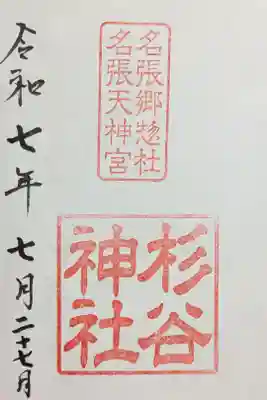 名張郷惣社
名張天神宮
杉谷
神社
令和七年 七月二十七日